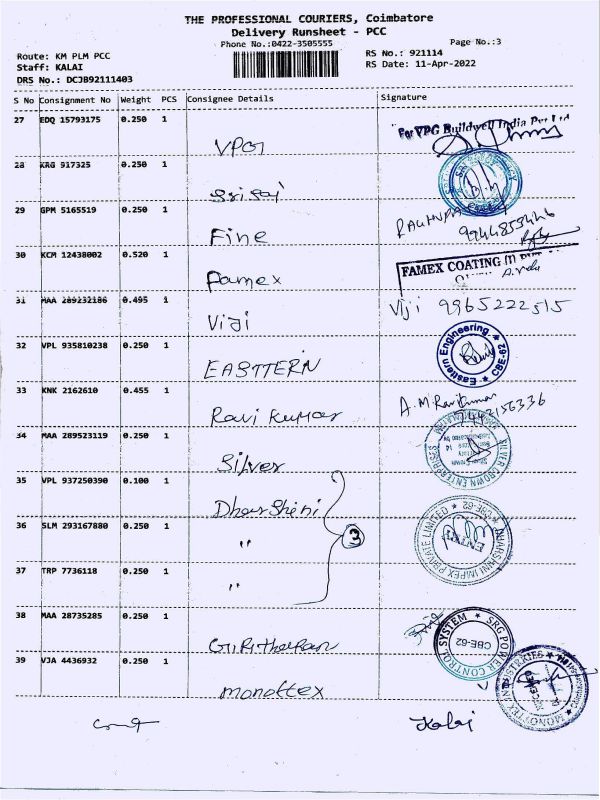 THE PROFESSIONAL COURIERS, Coimbatore
Delivery Runsheet - PCC
Phone No.:0422-3505555 Page No.:3
Route: KM PLM PCC RS No.: 921114
Staff: KALAI RS Date: 11-Apr-2022
DRS No.: DCJB92111403
S No Consignment No Weight PCS Consignee Details Signature
27 EDQ 15793175 0.250 1
VPG For VPG Buildwell India Pvt Ltd
28 KRG 917325 0.250 1
Sri Sai
29 GPM 5165519 0.250 1
Fine 9944853446
30 KCM 12438002 0.520 1
Famex FAMEX COATING
31 MAA 289232186 0.495 1
Viji Viji 9965222515
32 VPL 935810238 0.250 1
EASTTERN Easttern Engineering CBE-62
33 KNK 2162610 0.455 1
Ravi Kumar A.M Ravikumar 9443156336
34 MAA 289523119 0.250 1
Silver SILVER CROWN ENTERPRISES
35 VPL 937250390 0.100 1
Dharshini
36 SLM 293167880 0.250 1
" 3 DHARSHINI IMPEX PRIVATE LIMITED CBE-62 ENTRY
37 TRP 7736118 0.250 1
"
38 MAA 28735285 0.250 1
SRG POWER CONTROL SYSTEM CBE-62
39 VJA 4436932 0.250 1
monottex MONOTTEX INDUSTRIES
Kalai